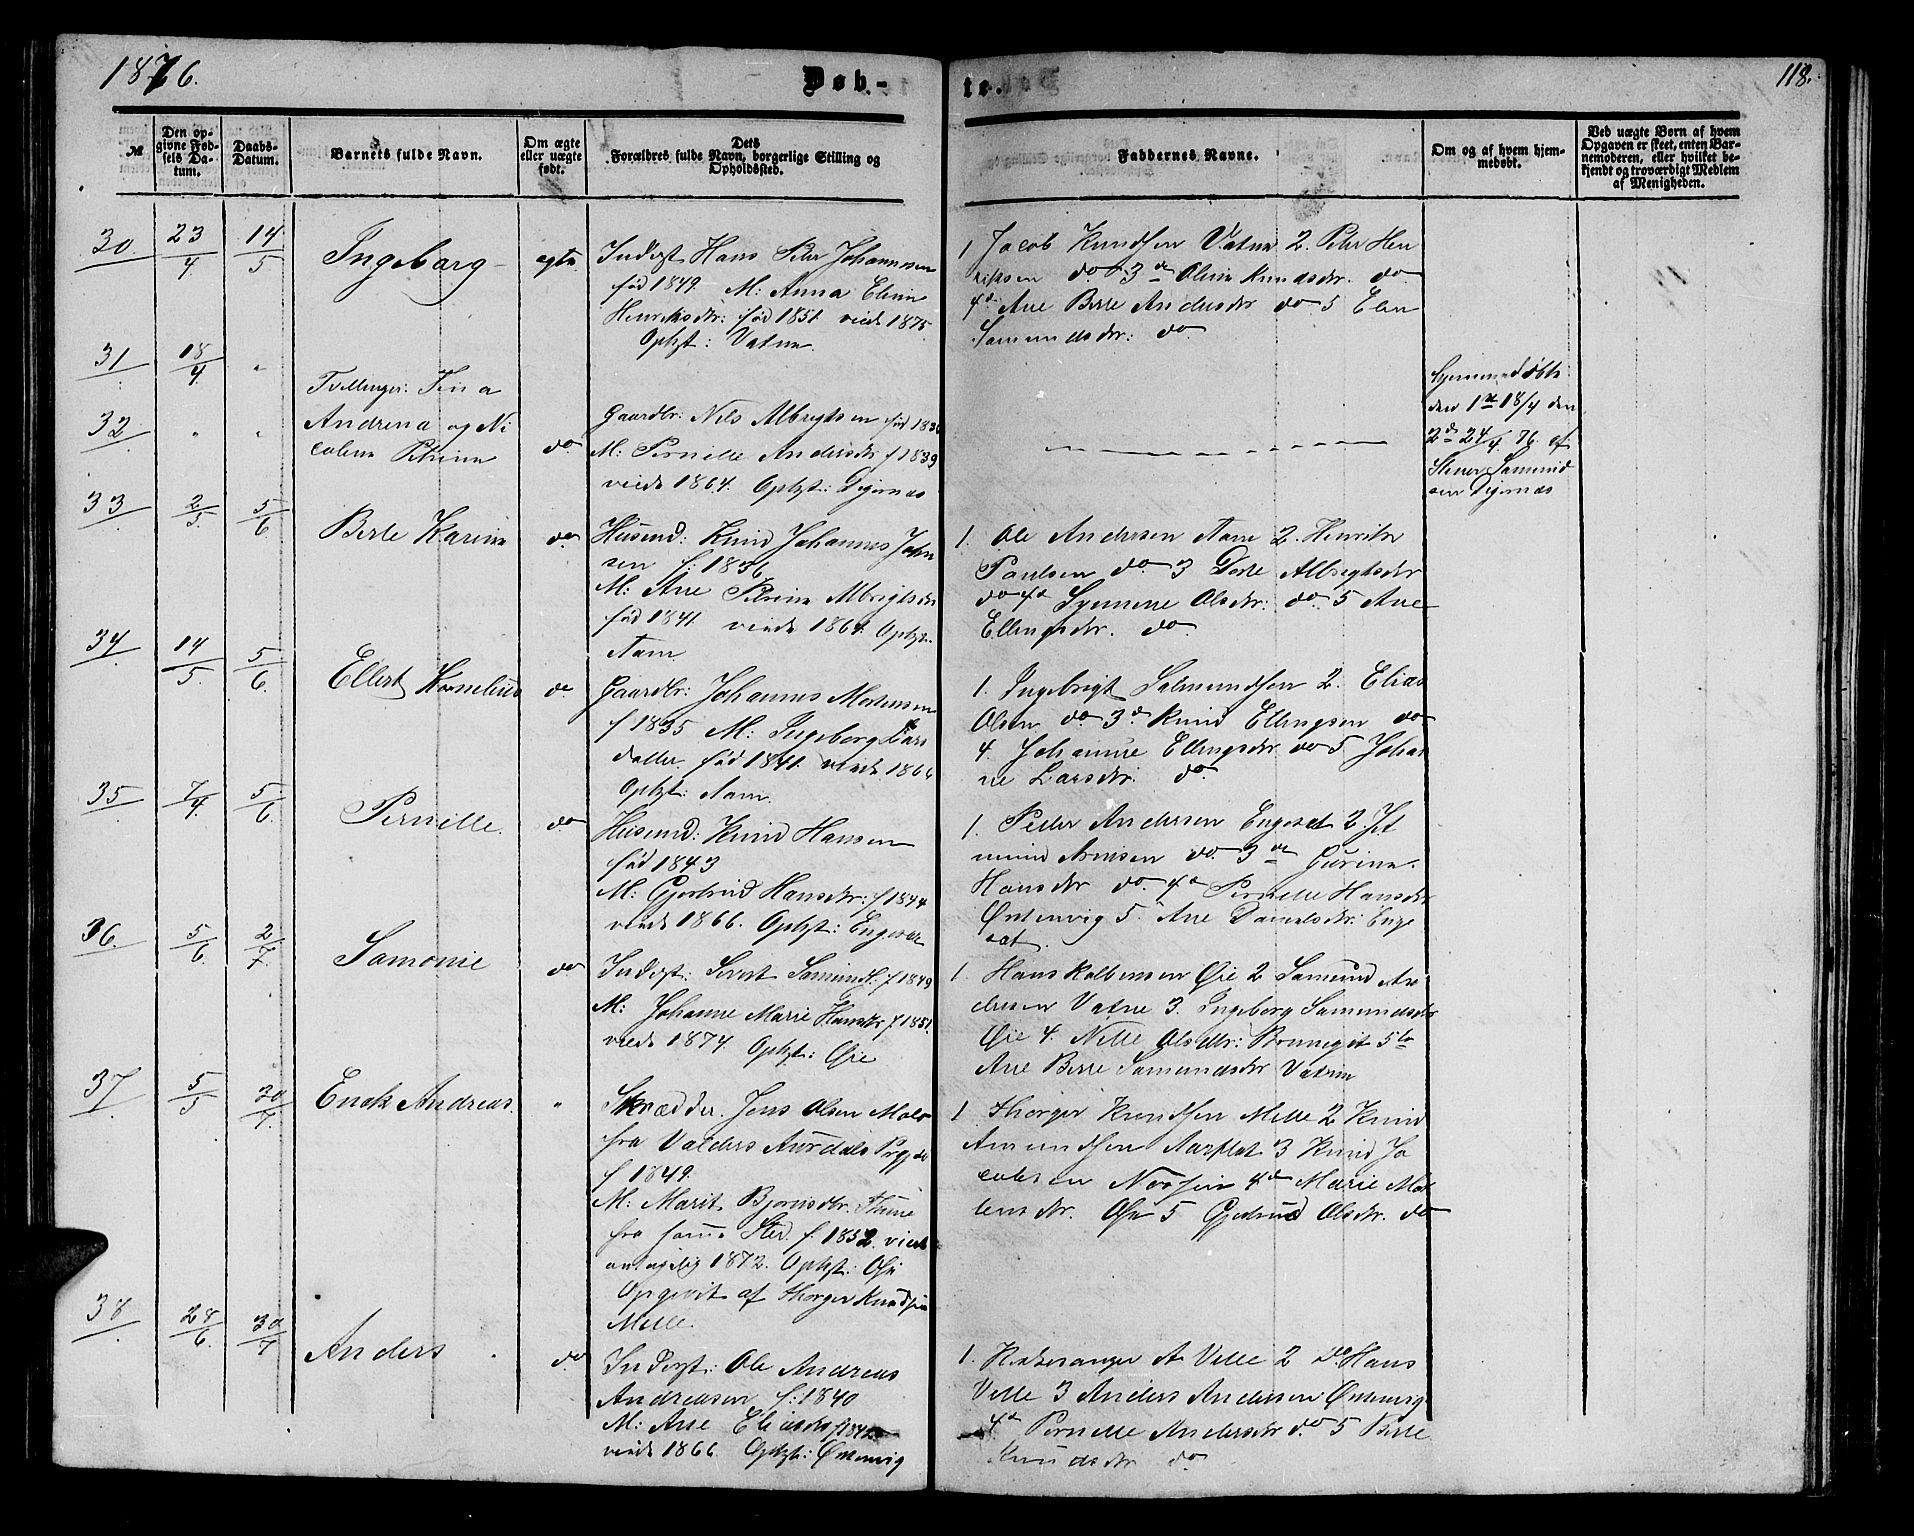 1876.
Døb-
te.
118.
№
Den op-
givne Fød-
sels Da-
tum.
Daabs-
Datum.
Barnets fulde Navn.
Om ægte
eller uægte
født.
Dets
Forældres fulde Navn, borgerlige Stilling og
Opholdssted.
Faddernes Navne.
Om og af hvem hjem-
medøbt.
Ved uægte Børn af hvem
Opgaven er skeet, enten Bar-
nemoderen, eller hvilket be-
kjendt og troværdigt Medlem
af Menigheden.
30
23/4
14/5
Ingeborg
ægte
Inderst Hans Peter Johannesen
fød 1849. M: Anna Eline
Henriksdtr: fød 1851 viede 1875.
Ophgt: Vatne
1 Jacob Knudsen Vatne 2. Peter Hen
riksen do 3de Oline Knudsdtr. do
4de Ane Berte Andersdtr do 5 Elen
Samundsdtr: do
31
18/4
"
32
"
"
Tvillinger: Jena
Andrina og Ni
coline Petrine
do
Gaardbr: Nils Albrigtsen fød 1836
M: Pernille Andersdtr f 1839
viede 1864. Ophgt: Digernæs
Hjemmedøbte
den 1ste 18/4 den
2den 24/4 76 af
Samund
sen Digernæs
33
2/5
5/6
Berte Karine
do
Husmd: Knud Johannes John
sen f: 1836
M: Ane Petrine Albrigtsdtr
fød 1841. viede 1864. Ophgt:
Aam
1. Ole Andersen Aam 2. Henrik
Paulsen do 3 Dorte Albrigtsdtr
do 4de Synnene Olsdtr: do. 5 Ane
Ellingsdtr. do
34
14/5
5/6
Ellert Kornelius
do
Gaardbr: Johannes Mortensen
f 1835 M: Ingeborg Lars
datter. fød 1841. viede 1866
Ophgt: Aam.
1. Ingebrigt Salmundsen 2. Elias
Olsen do 3de Knud Ellingsen do
4. Johanne Ellingsdtr. do 5. Johan
ne Larsdtr. do.
35
7/4
5/6
Pernille.
do
Husmd: Knud Hansen
fød 1843
M: Gjertrud Hansdtr: f 1844
viede 1866. Ophgt: Engeset
1. Peder Andersen Engeset 2 Jet
mund Arnesen do. 3de Gurine
Hansdtr do. 4de Pernille Hansdtr
Østenvig 5. Ane Danielsdtr: Enge
set.
36.
5/6
2/7
Samonie
do
Inderst: Sivert Samunds: f 1849
M: Johanne Marie Hansdtr f 1851.
viede 1874. Ophgt: Øie
1. Hans Kolbensen Øie 2 Samund An
dersen Vatne 3. Ingeborg Samundsdtr
Øie 4. Nille Olsdtr: 5te
Ane Berte Samundsdtr Vatne
37
5/5
30/7
Enok Andreas.
"
Skrædder. Jens Olsen
fra Valders Aurdals Prgjld
f 1849.
M: Marit Bjørnsdtr. Thune
fra samme Sted. f. 1852. viede
1872. Ophgt: Øie
Opgivet af Thorger Knudsen
Melle.
1 Thorger Knudsen Melle 2 Knud
Amundsen Aarflot 3 Knud Ja
cobsen 4de Marie Mor
tensdtr. Øie 5 Gjertrud Olsdtr. do
38
28/6
30/7
Anders
do
Inderst: Ole Andreas
Andreasen f: 1840
M: Ane Eliasdtr f 1842
viede 1866 Ophgt: Østenvig
1. Kirkesanger A Velle 2 Do Hans
Velle 3 Anders Andersen Østenvig
4de Pernille Andersdtr do 5 Berte
Knudsdtr do